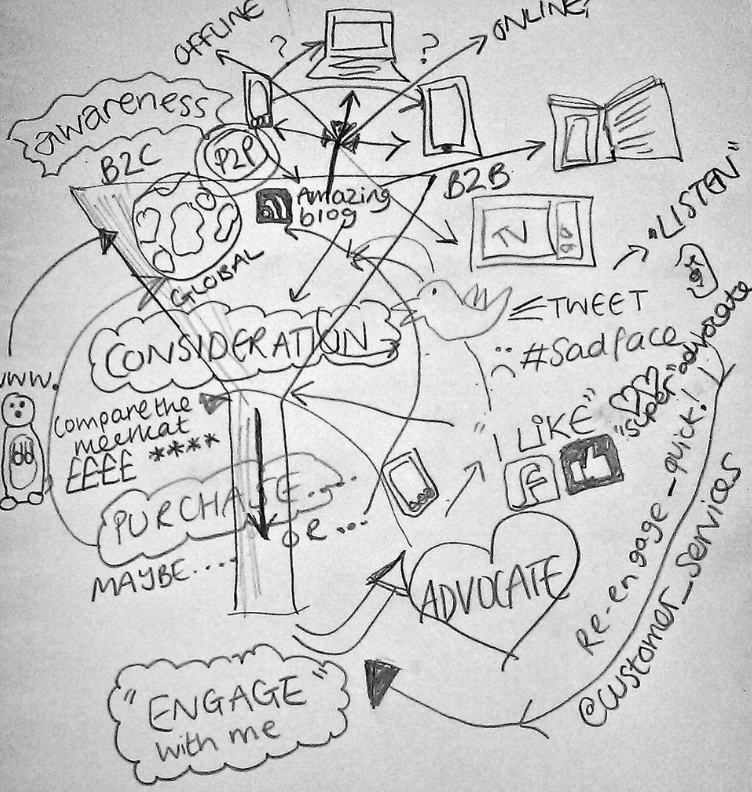 OFFLINE
?
?
ONLINE,
awareness
B2C
P2P
B2B
Amazing
blog
TV
GLOBAL
"LISTEN"
TWEET
CONSIDERATION
#Sadface
"super" advocate
www.
Compare the
meerkat
££££ ****
"I LIKE"
f
PURCHASE....
OR...
MAYBE....
ADVOCATE
Re-engage_quick!
@customer_services
"ENGAGE"
with me